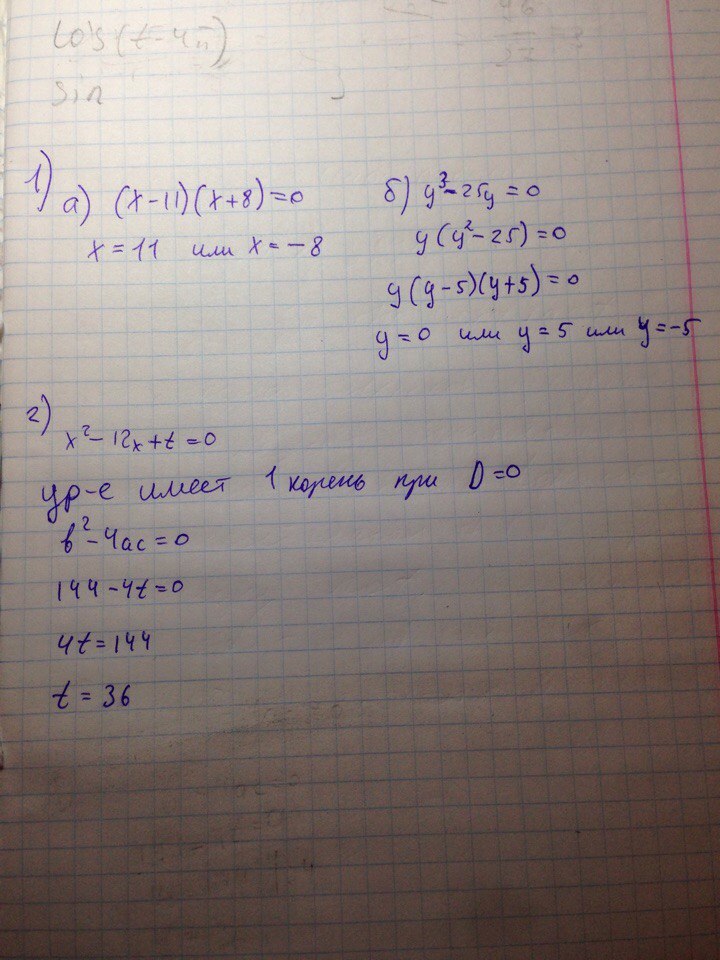 cos(t-4π)
sin
1)
а) (x-11)(x+8)=0
x=11 или x=-8
б) y³-25y=0
y(y²-25)=0
y(y-5)(y+5)=0
y=0 или y=5 или y=-5
2)
x²-12x+t=0
ур-е имеет 1 корень при D=0
b²-4ac=0
144-4t=0
4t=144
t=36